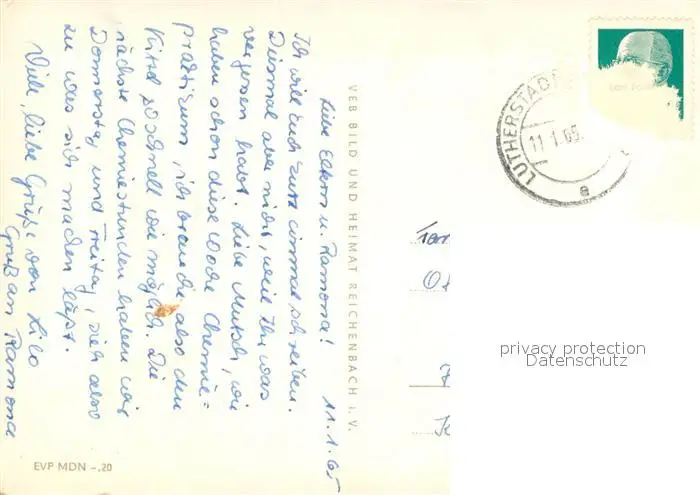 Liebe Eltern u. Ramona! 11.1.65
Ich will Euch kurz einmal schreiben.
Diesmal aber nicht, weil Ihr was
vergessen habt. Liebe Mutsch, wir
haben schon diese Woche Chemie=
praktikum, ich brauche also den
Kittel so schnell wie möglich. Die
nächste Chemiestunden haben wir
Donnerstag und Freitag, sieh also
zu was sich machen läßt.
Viele, liebe Grüße von Lilo
Gruß an Ramona
VEB BILD UND HEIMAT REICHENBACH i. V.
EVP MDN –,20
LUTHERSTADT
11.1.65
a
privacy protection
Datenschutz